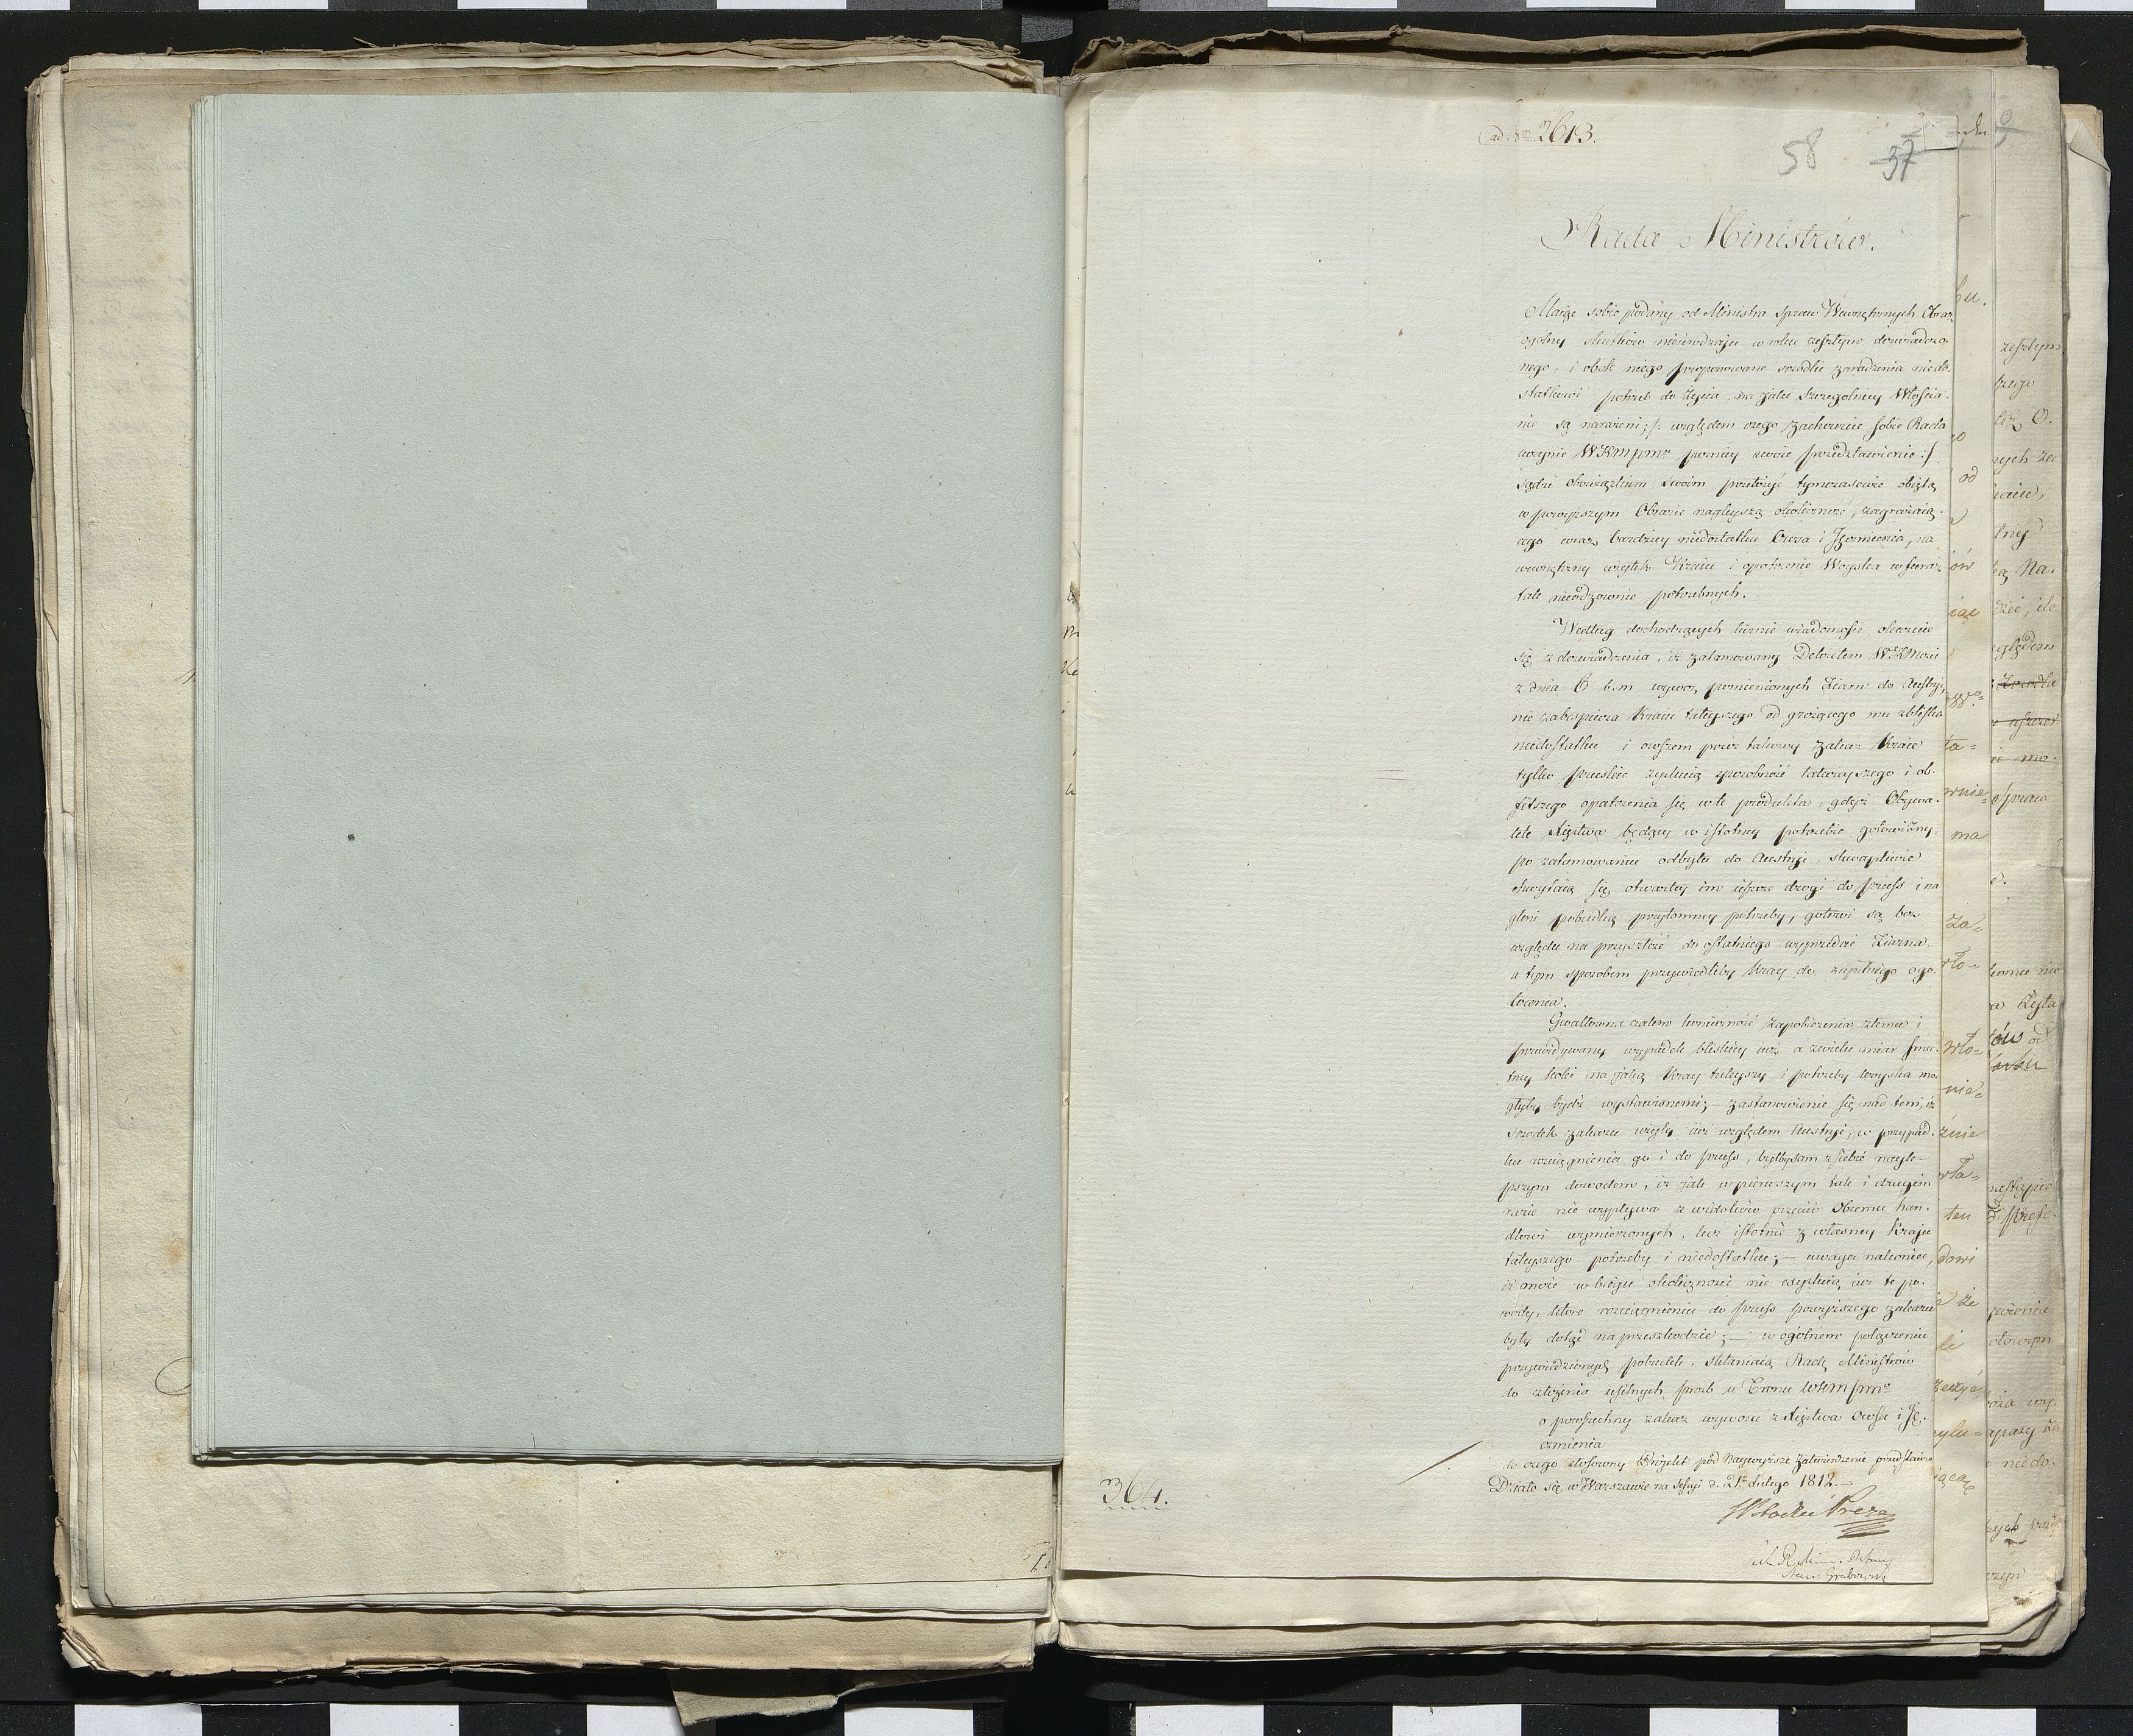 ad Nrm 2613.
58 37
Rada Ministrów.
Maiąc sobie podany od Ministra Spraw Wewnętrznych Obraz
ogólny skutków nieurodzaju w roku zeszłym doświadczo-
nego, i obok niego proponowane środki zaradzenia niedo-
statkowi potrzeb do życia, na jaki szczególniey Włościa-
nie są narażeni; /: względem czego zachowuie sobie Rada
uczynić WKMPMu poźniey swoie przedstawienie :/
sądzi obowiązkiem swoim przełożyć tymczasowie obiętą
w powyższym Obrazie nagleyszą okoliczność, zagrażaią-
cego coraz bardziey niedostatku Owsa i Jęczmienia, na
wewnętrzny użytek Kraiu i opatrzenie Woyska w furaż
tak nieodzownie potrzebnych.
Według dochodzących licznie wiadomości okazuie
się z doświadczenia, iż zatamowany Dekretem WKMości
z dnia 6 b.m wywoz pomienionych Ziarn do Austryi,
nie zabespiecza Kraiu tuteyszego od grożącego mu zbliska
niedostatku i owszem przez takowy zakaz Kraie
tylko pruskie zyskuią sposobność łatwieyszego i ob-
fitszego opatrzenia się w te produkta, gdyż Obywa-
tele Xięstwa będący w istotney potrzebie gotowizny,
po zatamowaniu odbytu do Austryi, skwapliwie
chwytaią się otwartey im ieszcze drogi do pruss i na
głosie pobudką przytomney potrzeby, gotowi są bez
względu na przyszłość do ostatniego wyprzedać Ziarna,
a tym sposobem przywiedliby Kray do zupełnego ogo-
łocenia.
Gwałtowna zatem konieczność zapobieżenia złemu i
przewidywany wypadek bliskiey iuż a zwielu miar smu-
tney kolei na jaką Kray tuteyszy i potrzeby woyska mo-
głyby bydź wystawionemi; — zastanowienie się nad tem, iż
środek zakazu użyty iuż względem Austryi, w przypad-
ku rozciągnienia go i do pruss, byłby sam z siebie nayle-
pszym dowodem, iż jak w pierwszym tak i drugim
razie nie wypływa z widoków przeciw Obcemu han-
dlowi wymierzonych, lecz istotnie z własney Kraju
tuteyszego potrzeby i niedostatku; — uwaga nakoniec,
iż może w biegu okoliczności nie exystuią iuż te po-
wody, które rozciągnieniu do pruss powyższego zakazu
były dotąd na przeszkodzie; — w ogólnem połączeniu
przywiedzionych pobudek, skłaniaią Radę Ministrów
do złożenia usilnych prosb u Tronu WKMPMu
o powszechny zakaz wywozu z Xięstwa Owsa i Ję-
czmienia
do czego stosowny Projekt pod Naywyższe Zatwierdzenie przedstawia
Działo się w Warszawie na Sessyi d. 21. Lutego 1812. —
364.
Stan: Grabowski